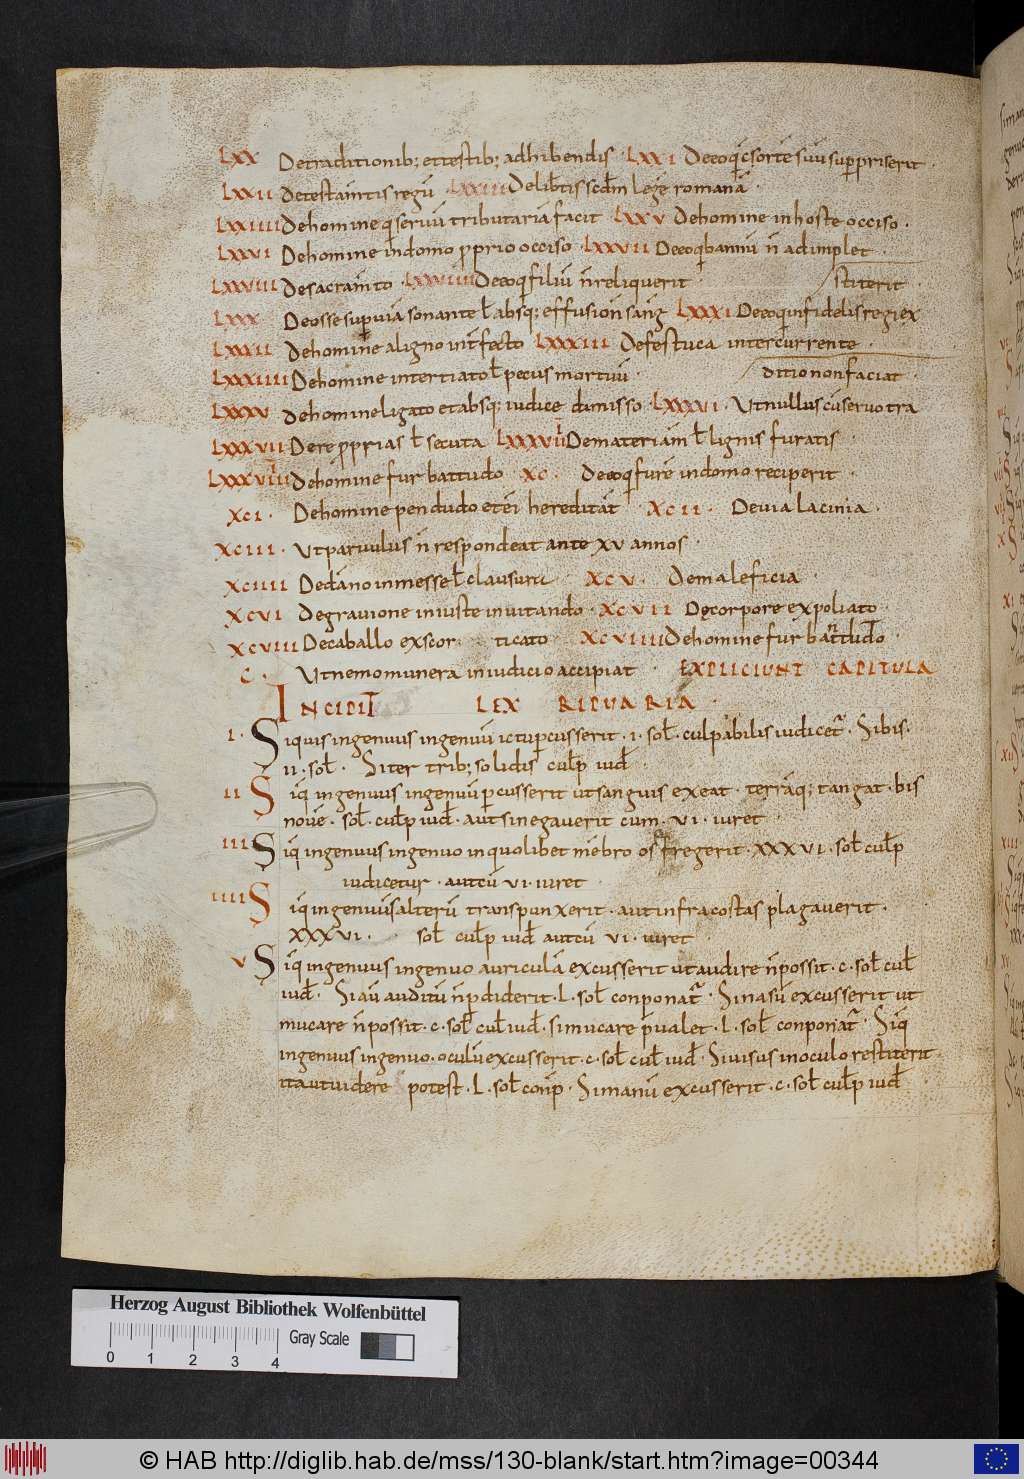 LXX Detraditionib; ettestib; adhibendis · LXXI Deeoq̇ csorte suū sup̱priserit ·
LXXII detestam̄tis regū · LXXIII Delib̄tis scd̄m legē romanā ·
LXXIIII Dehomine q̇ servū tributariā facit LXXV Dehomine inhoste occiso ·
LXXVI Dehomine indomo p̱prio occiso · LXXVII Deeoq̇ bannū n̄ adimplet ·
LXXVIII Desacram̄to · LXXVIIII Deeoq̇ filiū n̄ reliquerit · / stiterit ·
LXXX Deosse sup̱ viā sonante ł absq; effusion̄ sang̅ LXXXI Deeoq̇ infidelis regi ex
LXXXII Dehominē aligno int̄fecto LXXXIII Defestuca intercurrente ·
LXXXIIII Dehomine intertiato ł pecus mortuū · / ditio non faciat ·
LXXXV dehomine ligato et absq; iudice dimisso · LXXXVI · Ut nullus cū servo tra
LXXXVII Dere p̱prias ł secuta LXXXVIII Demateriām ł lignis furatis ·
LXXXVIIII Dehomine fur battudo · XC · Deeoq̇ furē indomo reciperit ·
XCI · Dehomine pendudo et ei hereditat̄ XCII · Devia lacinia ·
XCIII · Ut parvulus n̄ respondeat ante XV annos ·
XCIIII Dedāno inmesse ł clausura XCV · Demaleficia ·
XCVI Degravione iniuste invitando · XCVII Dęcorpore expoliato ·
XCVIII Decaballo excor ticato · XCVIIII Dehomine fur battudo ·
C · Ut nemo munera iniudicio accipiat EXPLICIUNT CAPITULA
INCIPIT LEX RIPUARIA ·
I · Siquis ingenuus ingenuū ictu p̱cusserit · i · sol̄ · culpabilis iudicet̄ · Si bis ·
ii · sol̄ · Si ter trib; solidis culp̄ iud̄ ·
II Siq̇ ingenuus ingenuū p̱cusserit ut sanguis exeat · terrāq; tangat · bis
novē · sol̄ · culp̄ iud̄ · aut si negaverit cum · VI · iuret ·
III Siq̇ ingenuus ingenuo inquolibet mēbro os fregerit · XXXVI · sol̄ culp̄
iudicetur · aut cū VI · iuret ·
IIII Siq̇ ingenuus alterū transpunxerit · aut infra costas plagaverit ·
XXXVI · sol̄ culp̄ iud̄ aut cū VI · iuret ·
V Siq̇ ingenuus ingenuo auriculā excusserit ut audire n̄ possit · c · sol̄ cul̄
iud̄ · Si aū auditū n̄ p̱diderit · L · sol̄ conponat̄ · Si nasū excusserit ut
mucare n̄ possit · c · sol̄ cul̄ iud̄ · si mucare p̄valet · L · sol̄ conponat̄ · Siq̇
ingenuus ingenuo · oculū excusserit · c · sol̄ cul̄ iud̄ · Si visus inoculo restiterit
ita ut videre potest · L · sol̄ conp̄ · Si manū excusserit · c · sol̄ culp̄ iud̄
Herzog August Bibliothek Wolfenbüttel
Gray Scale
0 1 2 3 4
© HAB http://diglib.hab.de/mss/130-blank/start.htm?image=00344